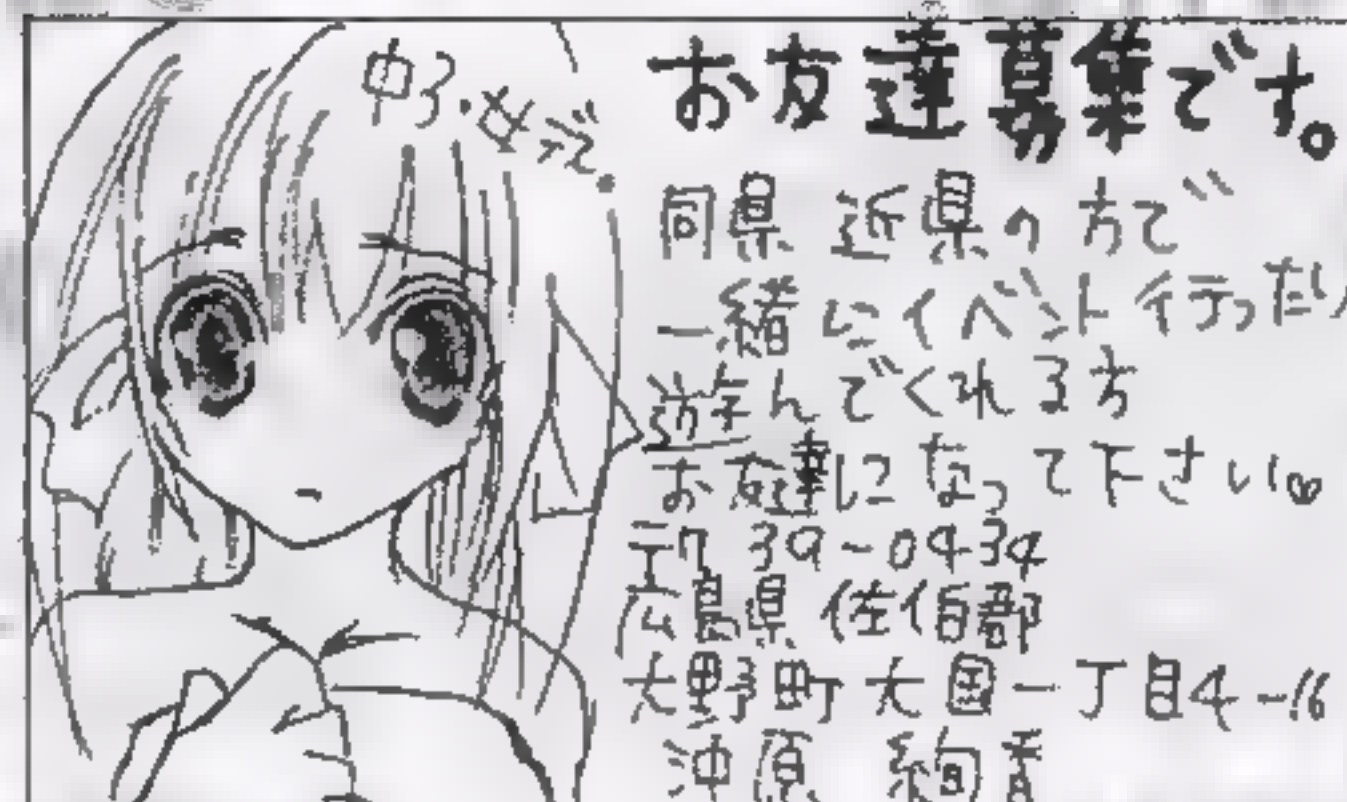 中3・女
お友達募集です。
同県 近県の方で
一緒にイベント行ったり
遊んでくれる方
お友達になって下さい。
〒739-0434
広島県 佐伯郡
大野町大国一丁目4-16
沖原 絢